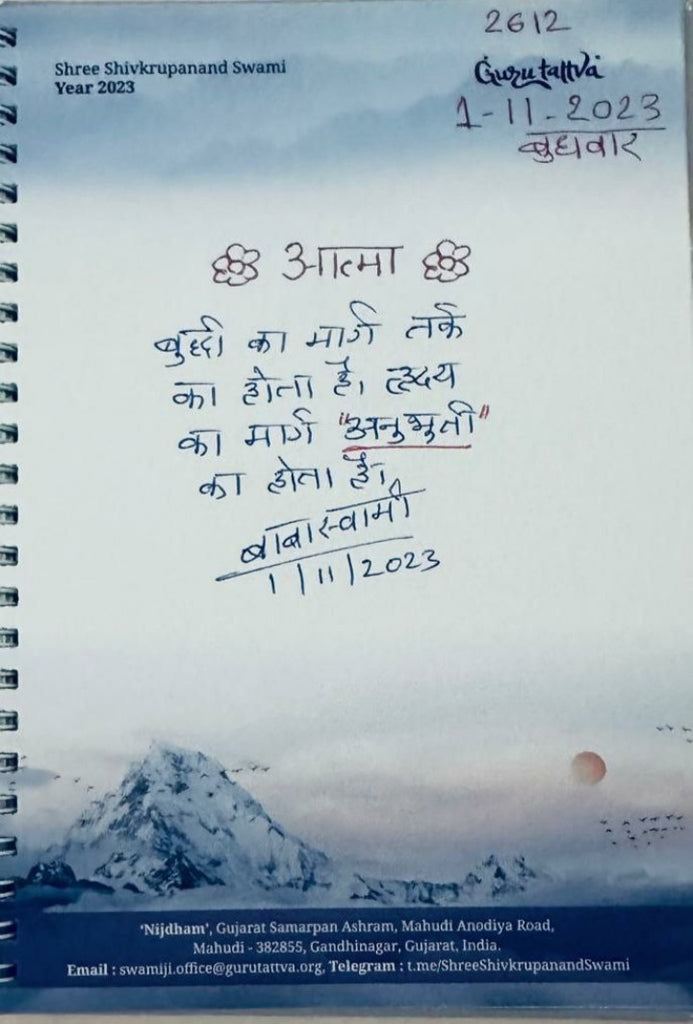 2612
Shree Shivkrupanand Swami
Year 2023
Gurutattva
1-11-2023
बुधवार
आत्मा
बुद्धी का मार्ग तर्क
का होता है। हृदय
का मार्ग "अनुभुती"
का होता है।
बाबास्वामी
1/11/2023
'Nijdham', Gujarat Samarpan Ashram, Mahudi Anodiya Road,
Mahudi - 382855, Gandhinagar, Gujarat, India.
Email : swamiji.office@gurutattva.org, Telegram : t.me/ShreeShivkrupanandSwami